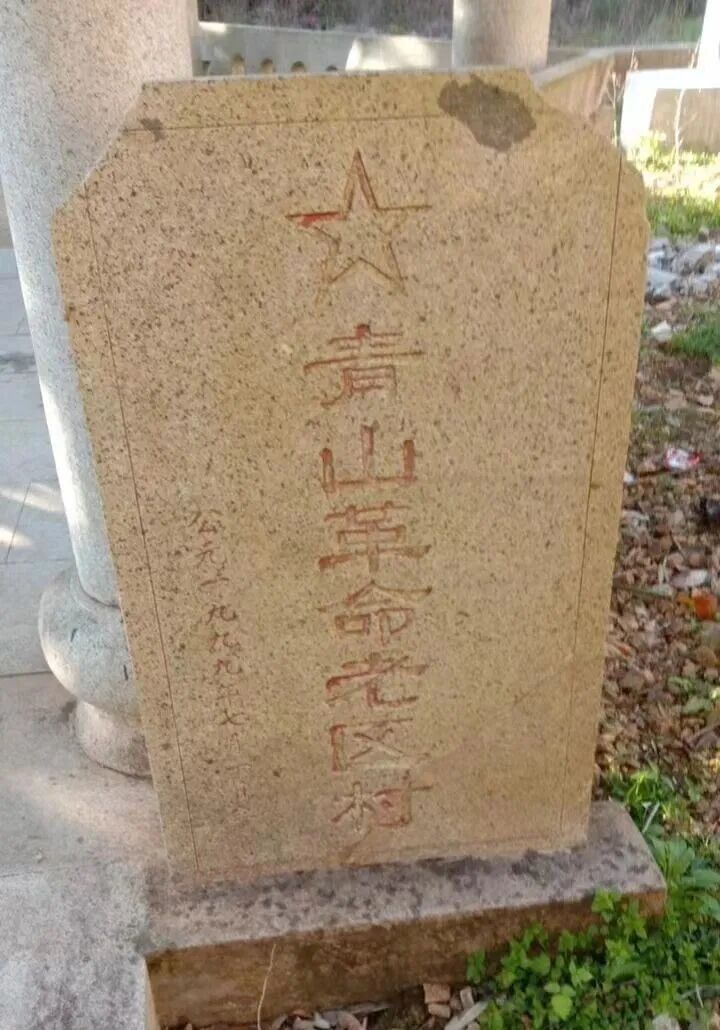 青山革命老区村
公元一九九九年七月一日